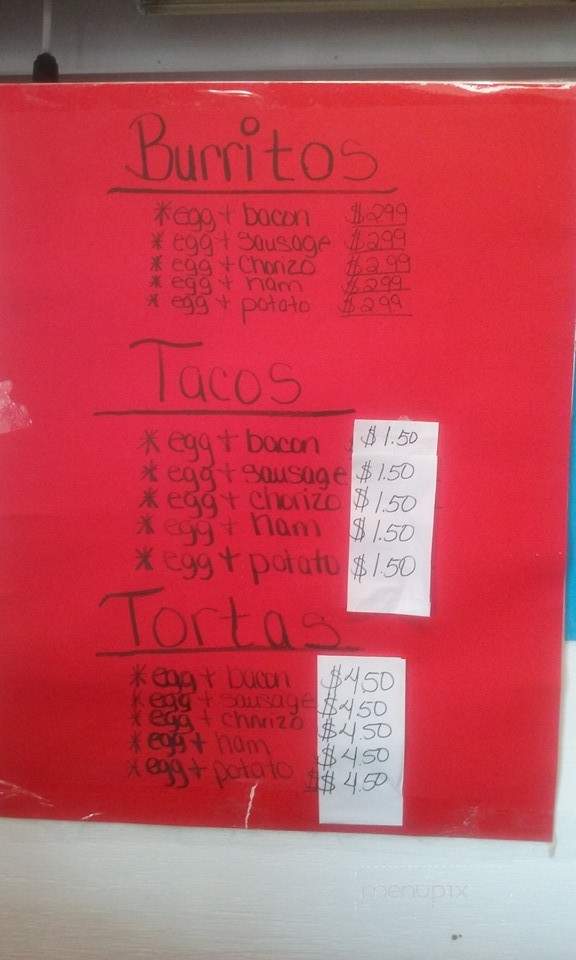 Burritos
* egg + bacon $2.99
* egg + sausage $2.99
* egg + chorizo $2.99
* egg + ham $2.99
* egg + potato $2.99
Tacos
* egg + bacon $1.50
* egg + sausage $1.50
* egg + chorizo $1.50
* egg + ham $1.50
* egg + potato $1.50
Tortas
* egg + bacon $4.50
* egg + sausage $4.50
* egg + chorizo $4.50
* egg + ham $4.50
* egg + potato $$4.50
menupix